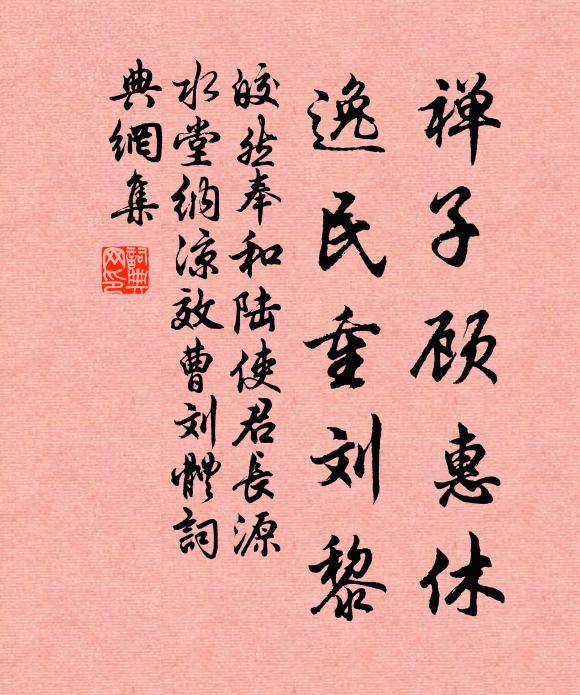 禅子顾惠休
逸民重刘黎
皎然奉和陆使君長源
水堂纳凉效曹刘體詞
典網集
詞典网印